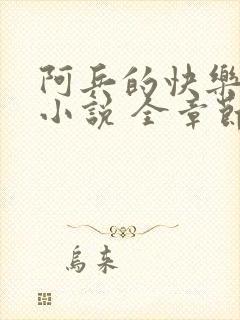 阿兵的快樂
小說 全章節
烏來